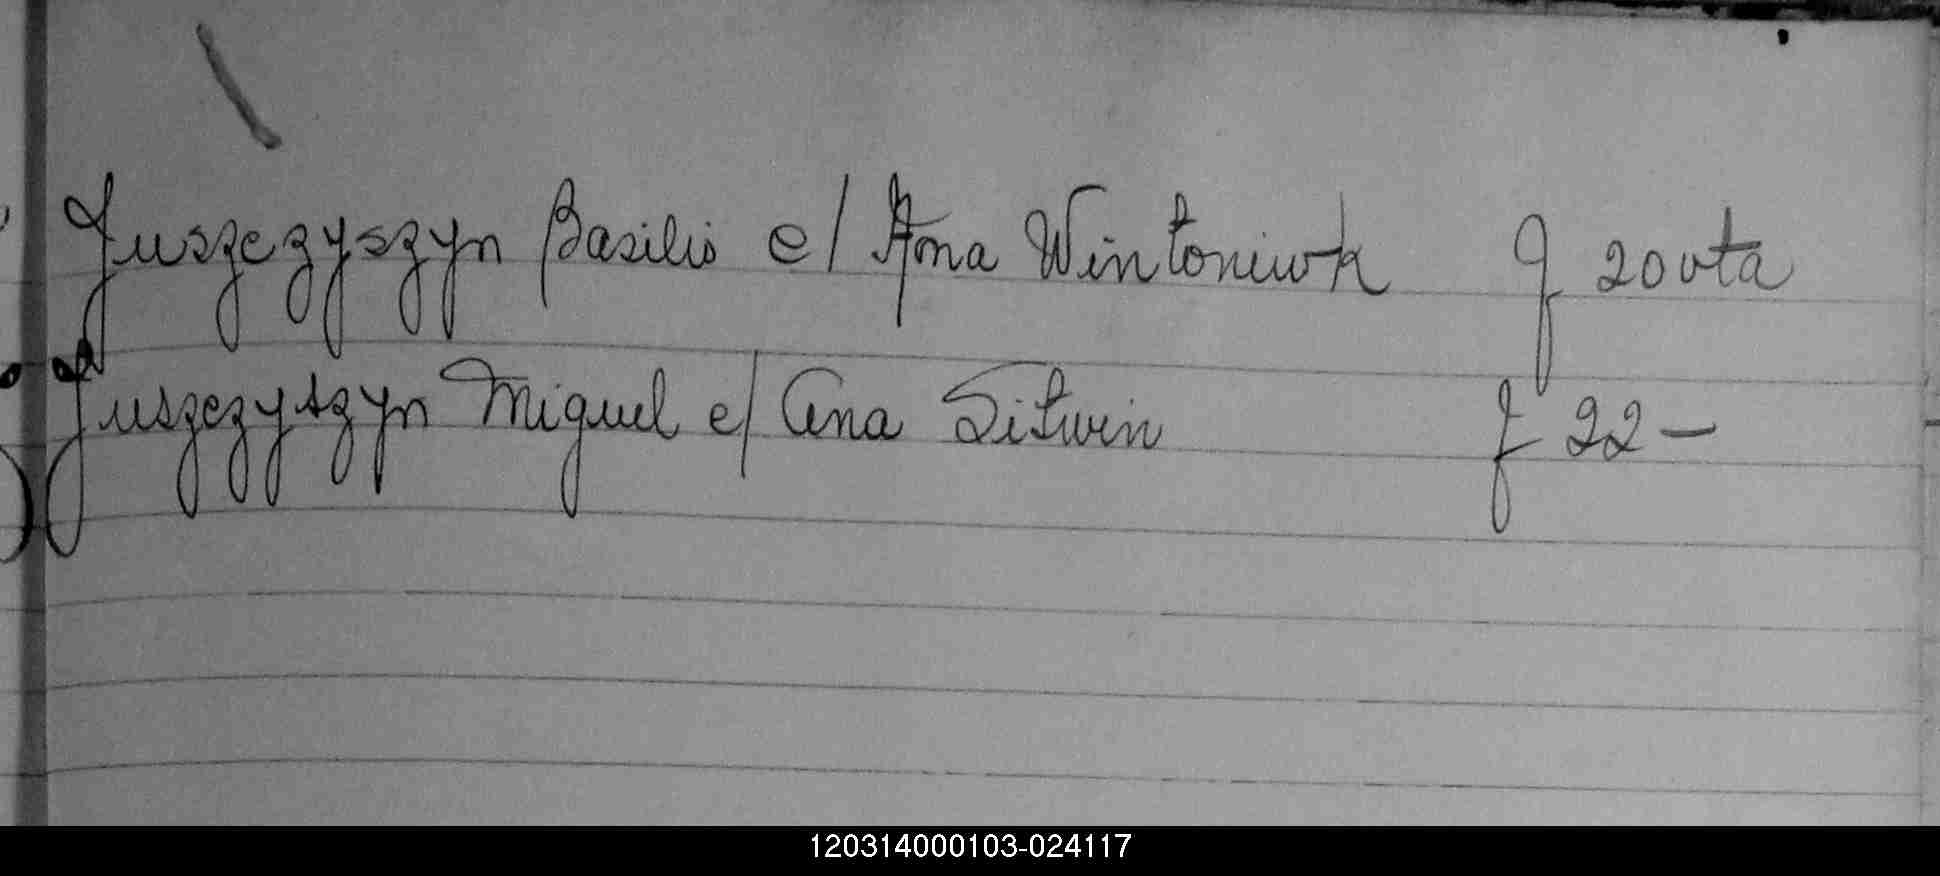 Juszczyszyn Basilio c/ Ana Wintoniuk f 20 vta
Juszczyszyn Miguel c/ Ana Litwin f 22 —
120314000103-024117